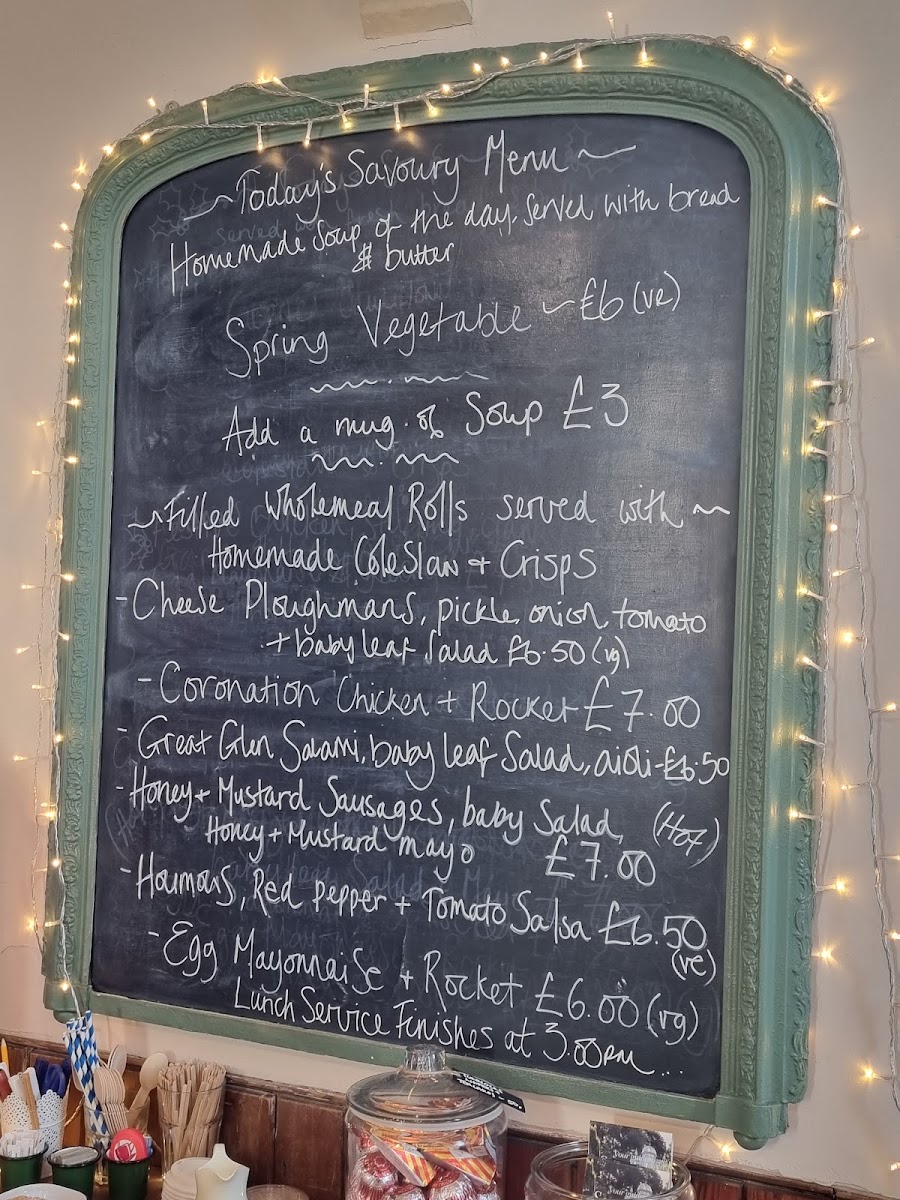 ~Today's Savoury Menu~
Homemade Soup of the day, served with bread
& butter
Spring Vegetable ~ £6 (ve)
Add a mug of Soup £3
~Filled Wholemeal Rolls served with~
Homemade ColeSlaw + Crisps
- Cheese Ploughmans, pickle, onion, tomato
+ baby leaf Salad £6.50 (vg)
- Coronation Chicken + Rocket £7.00
- Great Glen Salami, baby leaf Salad, aioli - £6.50
- Honey + Mustard Sausages, baby Salad, (Hot)
Honey + Mustard mayo £7.00
- Houmous, Red Pepper + Tomato Salsa £6.50
(ve)
- Egg Mayonnaise + Rocket £6.00 (vg)
Lunch Service Finishes at 3.00pm...